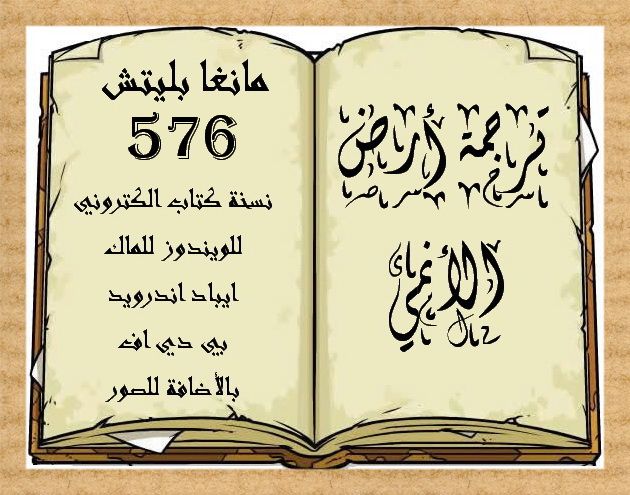 ترجمة أرض
الأنمي
مانغا بليتش
576
نسخة كتاب الكتروني
للويندوز للماك
ايباد اندرويد
بي دي اف
بالأضافة للصور